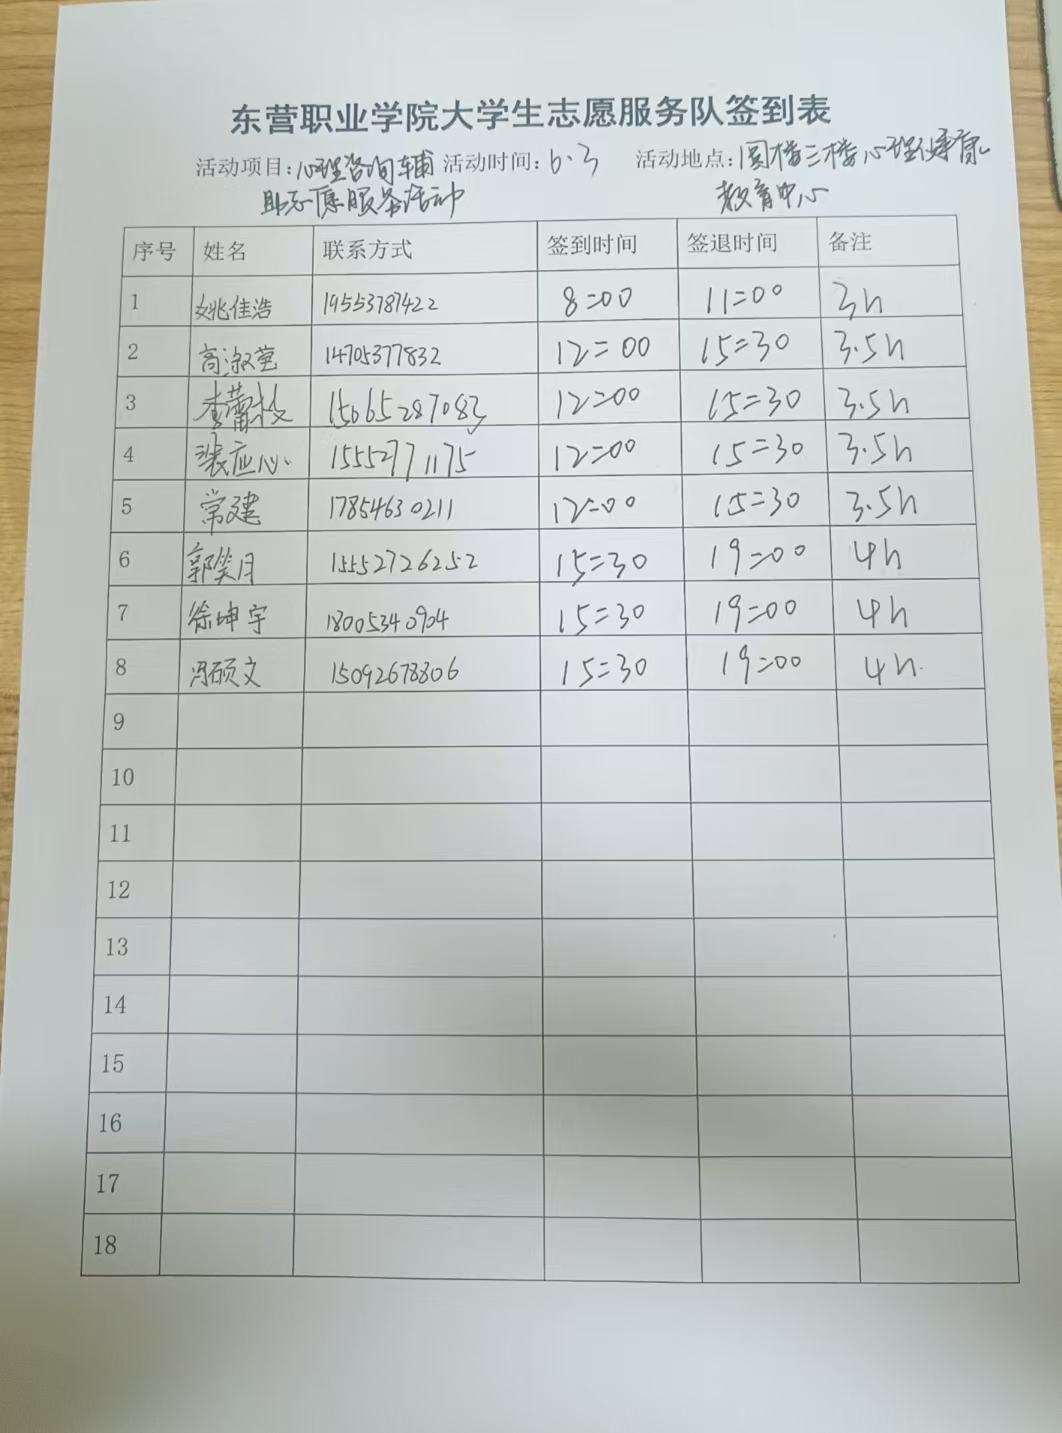 东营职业学院大学生志愿服务队签到表
活动项目：心理咨询辅 活动时间：6.3 活动地点：图楼三楼心理健康
助志愿服务活动 教育中心
序号 姓名 联系方式 签到时间 签退时间 备注
1 姚佳浩 19553787422 8:00 11:00 3h
2 高淑莹 14705377832 12:00 15:30 3.5h
3 李蕾枝 15065287083 12:00 15:30 3.5h
4 裴应心 15552771175 12:00 15:30 3.5h
5 常建 17854630211 12:00 15:30 3.5h
6 郭笑月 15552726252 15:30 19:00 4h
7 徐坤宇 18005340904 15:30 19:00 4h
8 冯硕文 15092678806 15:30 19:00 4h
9
10
11
12
13
14
15
16
17
18